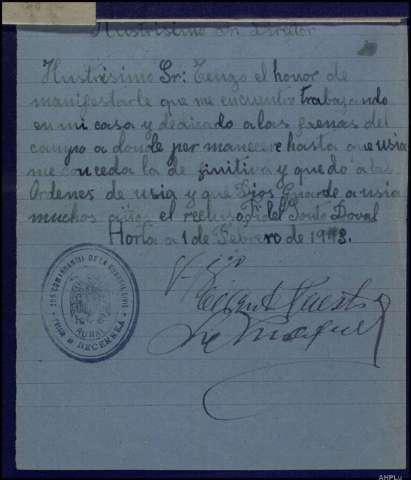 Ilustrisimo Sr. Director
Ilustrisimo Sr: Tengo el honor de
manifestarle que me encuentro trabajando
en mi casa y dedicado a las faenas del
campo a donde per manecere hasta que usia
me conceda la de finitiva y quedo a las
Ordenes de usia y que Dios Guarde a usia
muchos años el recluso Fidel Souto Doval
Horta a 1 de Febrero de 1943.
RURAL
BECERREA
AHPLU